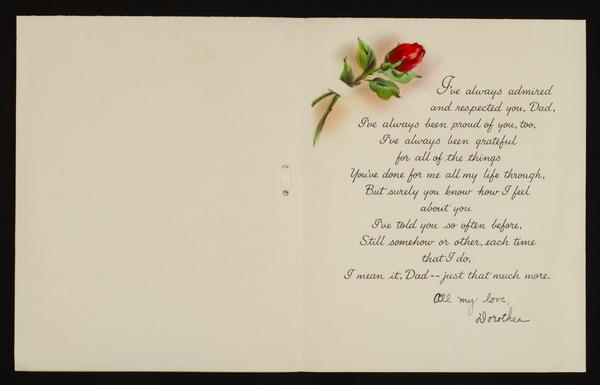 I've always admired
and respected you, Dad,
I've always been proud of you, too,
I've always been grateful
for all of the things
You've done for me all my life through,
But surely you know how I feel
about you
I've told you so often before,
Still somehow or other, each time
that I do,
I mean it, Dad -- just that much more.
All my love,
Dorothea